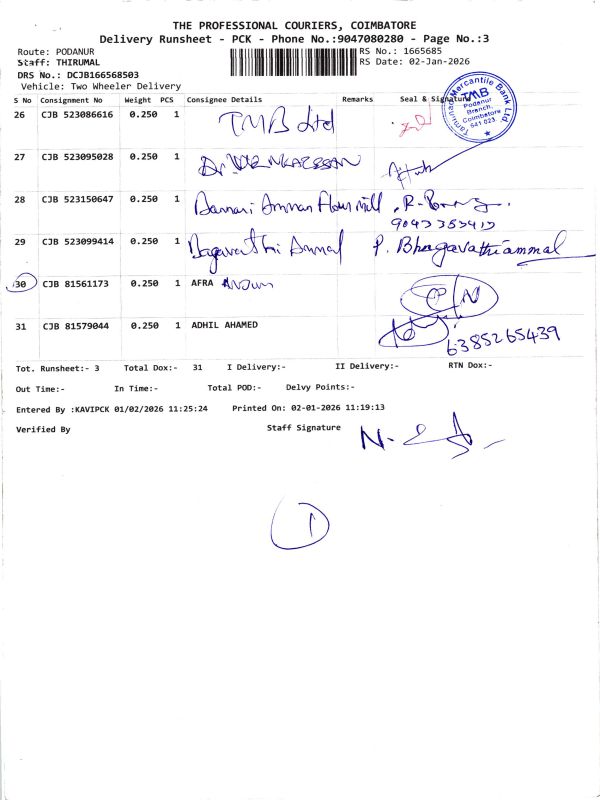 THE PROFESSIONAL COURIERS, COIMBATORE
Delivery Runsheet - PCK - Phone No.:9047080280 - Page No.:3
Route: PODANUR
RS No.: 1665685
Staff: THIRUMAL
RS Date: 02-Jan-2026
DRS No.: DCJB166568503
Vehicle: Two Wheeler Delivery
S No Consignment No Weight PCS Consignee Details Remarks Seal & Signature
Tamilnad Mercantile Bank Ltd
TMB
Podanur
Branch,
Coimbatore
641 023
26 CJB 523086616 0.250 1 TMB Ltd
27 CJB 523095028 0.250 1 Dr
28 CJB 523150647 0.250 1 Bannari Amman Flour mill R.
29 CJB 523099414 0.250 1 Bagavathi Ammal P. Bhagavathiammal
30 CJB 81561173 0.250 1 AFRA Anjum
31 CJB 81579044 0.250 1 ADHIL AHAMED
6385265439
Tot. Runsheet:- 3 Total Dox:- 31 I Delivery:- II Delivery:- RTN Dox:-
Out Time:- In Time:- Total POD:- Delvy Points:-
Entered By :KAVIPCK 01/02/2026 11:25:24 Printed On: 02-01-2026 11:19:13
Verified By Staff Signature
1